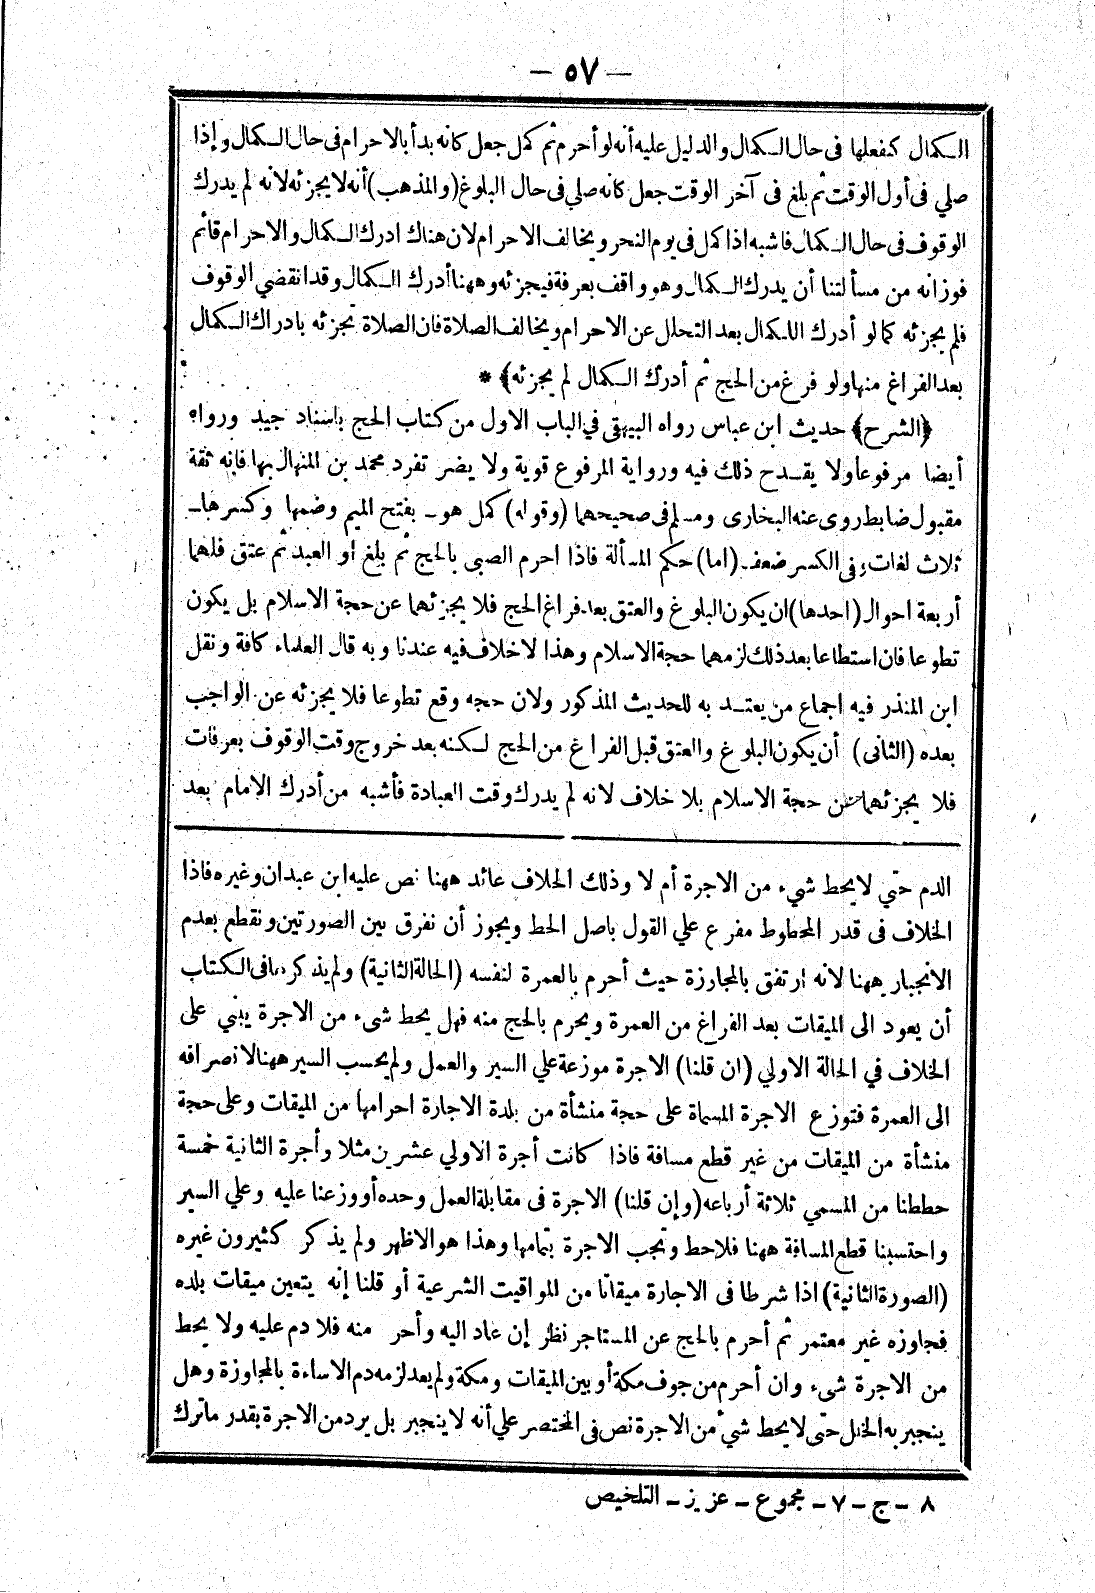 — ٥٧ —
الكمال كفعلها فى حال الكمال والدليل عليه أنه لو أحرم ثم كمل جعل كانه بدأ بالاحرام فى حال الكمال وإذا
صلي فى أول الوقت ثم بلغ فى آخر الوقت جعل كانه صلي فى حال البلوغ (والمذهب) أنه لا يجزئه لانه لم يدرك
الوقوف فى حال الكمال فاشبه اذا كمل فى يوم النحر ويخالف الاحرام لان هناك ادرك الكمال والاحرام قائم
فوزانه من مسألتنا أن يدرك الكمال وهو واقف بعرفة فيجزئه وههنا أدرك الكمال وقد انقضي الوقوف
فلم يجزئه كما لو أدرك الكمال بعد التحلل عن الاحرام ويخالف الصلاة فان الصلاة تجزئه بادراك الكمال
بعد الفراغ منها ولو فرغ من الحج ثم أدرك الكمال لم يجزئه﴾ *
﴿الشرح﴾ حديث ابن عباس رواه البيهقى في الباب الاول من كتاب الحج باسناد جيد ورواه
أيضا مرفوعا ولا يقدح ذلك فيه ورواية المرفوع قوية ولا يضر تفرد محمد بن المنهال بها فإنه ثقة
مقبول ضابط روى عنه البخارى ومسلم فى صحيحهما (وقوله) كمل هو ـ بفتح الميم وضمها وكسرها ـ
ثلاث لغات وفى الكسر ضعف ـ (اما) حكم المسألة فاذا احرم الصبي بالحج ثم بلغ او العبد ثم عتق فلهما
أربعة احوال (احدها) ان يكون البلوغ والعتق بعد فراغ الحج فلا يجزئهما عن حجة الاسلام بل يكون
تطوعا فان استطاعا بعد ذلك لزمهما حجة الاسلام وهذا لا خلاف فيه عندنا وبه قال العلماء كافة ونقل
ابن المنذر فيه اجماع من يعتد به للحديث المذكور ولان حجه وقع تطوعا فلا يجزئه عن الواجب
بعده (الثانى) أن يكون البلوغ والعتق قبل الفراغ من الحج لكنه بعد خروج وقت الوقوف بعرفات
فلا يجزئهما عن حجة الاسلام بلا خلاف لانه لم يدرك وقت العبادة فأشبه من أدرك الامام بعد
الدم حتى لا يحط شيء من الاجرة أم لا وذلك الخلاف عائد ههنا نص عليه ابن عبدان وغيره فاذا
الخلاف فى قدر المحطوط مفرع علي القول باصل الحط ويجوز أن نفرق بين الصورتين ونقطع بعدم
الانجبار ههنا لانه ارتفق بالمجاوزة حيث أحرم بالعمرة لنفسه (الحالة الثانية) ولم يذكرها فى الكتاب
أن يعود الى الميقات بعد الفراغ من العمرة ويحرم بالحج منه فهل يحط شىء من الاجرة يبنى على
الخلاف في الحالة الاولي (ان قلنا) الاجرة موزعة علي السير والعمل ولم يحسب السير ههنا لانصرافه
الى العمرة فتوزع الاجرة المسماة على حجة منشأة من بلدة الاجارة احرامها من الميقات وعلى حجة
منشأة من الميقات من غير قطع مسافة فاذا كانت أجرة الاولي عشرين مثلا وأجرة الثانية خمسة
حططنا من المسمي ثلاثة أرباعه (وإن قلنا) الاجرة فى مقابلة العمل وحده أو وزعنا عليه وعلي السير
واحتسبنا قطع المسافة ههنا فلا حط وتجب الاجرة بتمامها وهذا هو الاظهر ولم يذكر كثيرون غيره
(الصورة الثانية) اذا شرطا فى الاجارة ميقاتا من المواقيت الشرعية أو قلنا إنه يتعين ميقات بلده
فجاوزه غير معتمر ثم أحرم بالحج عن المستاجر نظر إن عاد اليه وأحر منه فلا دم عليه ولا يحط
من الاجرة شىء وان أحرم من جوف مكة أو بين الميقات ومكة ولم يعد لزمه دم الاساءة بالمجاوزة وهل
ينجبر به الخلل حتى لا يحط شئ من الاجرة نص فى المختصر علي أنه لا ينجبر بل يرد من الاجرة بقدر ما ترك
٨ ـ ج ـ ٧ ـ مجموع ـ عزيز ـ التلخيص